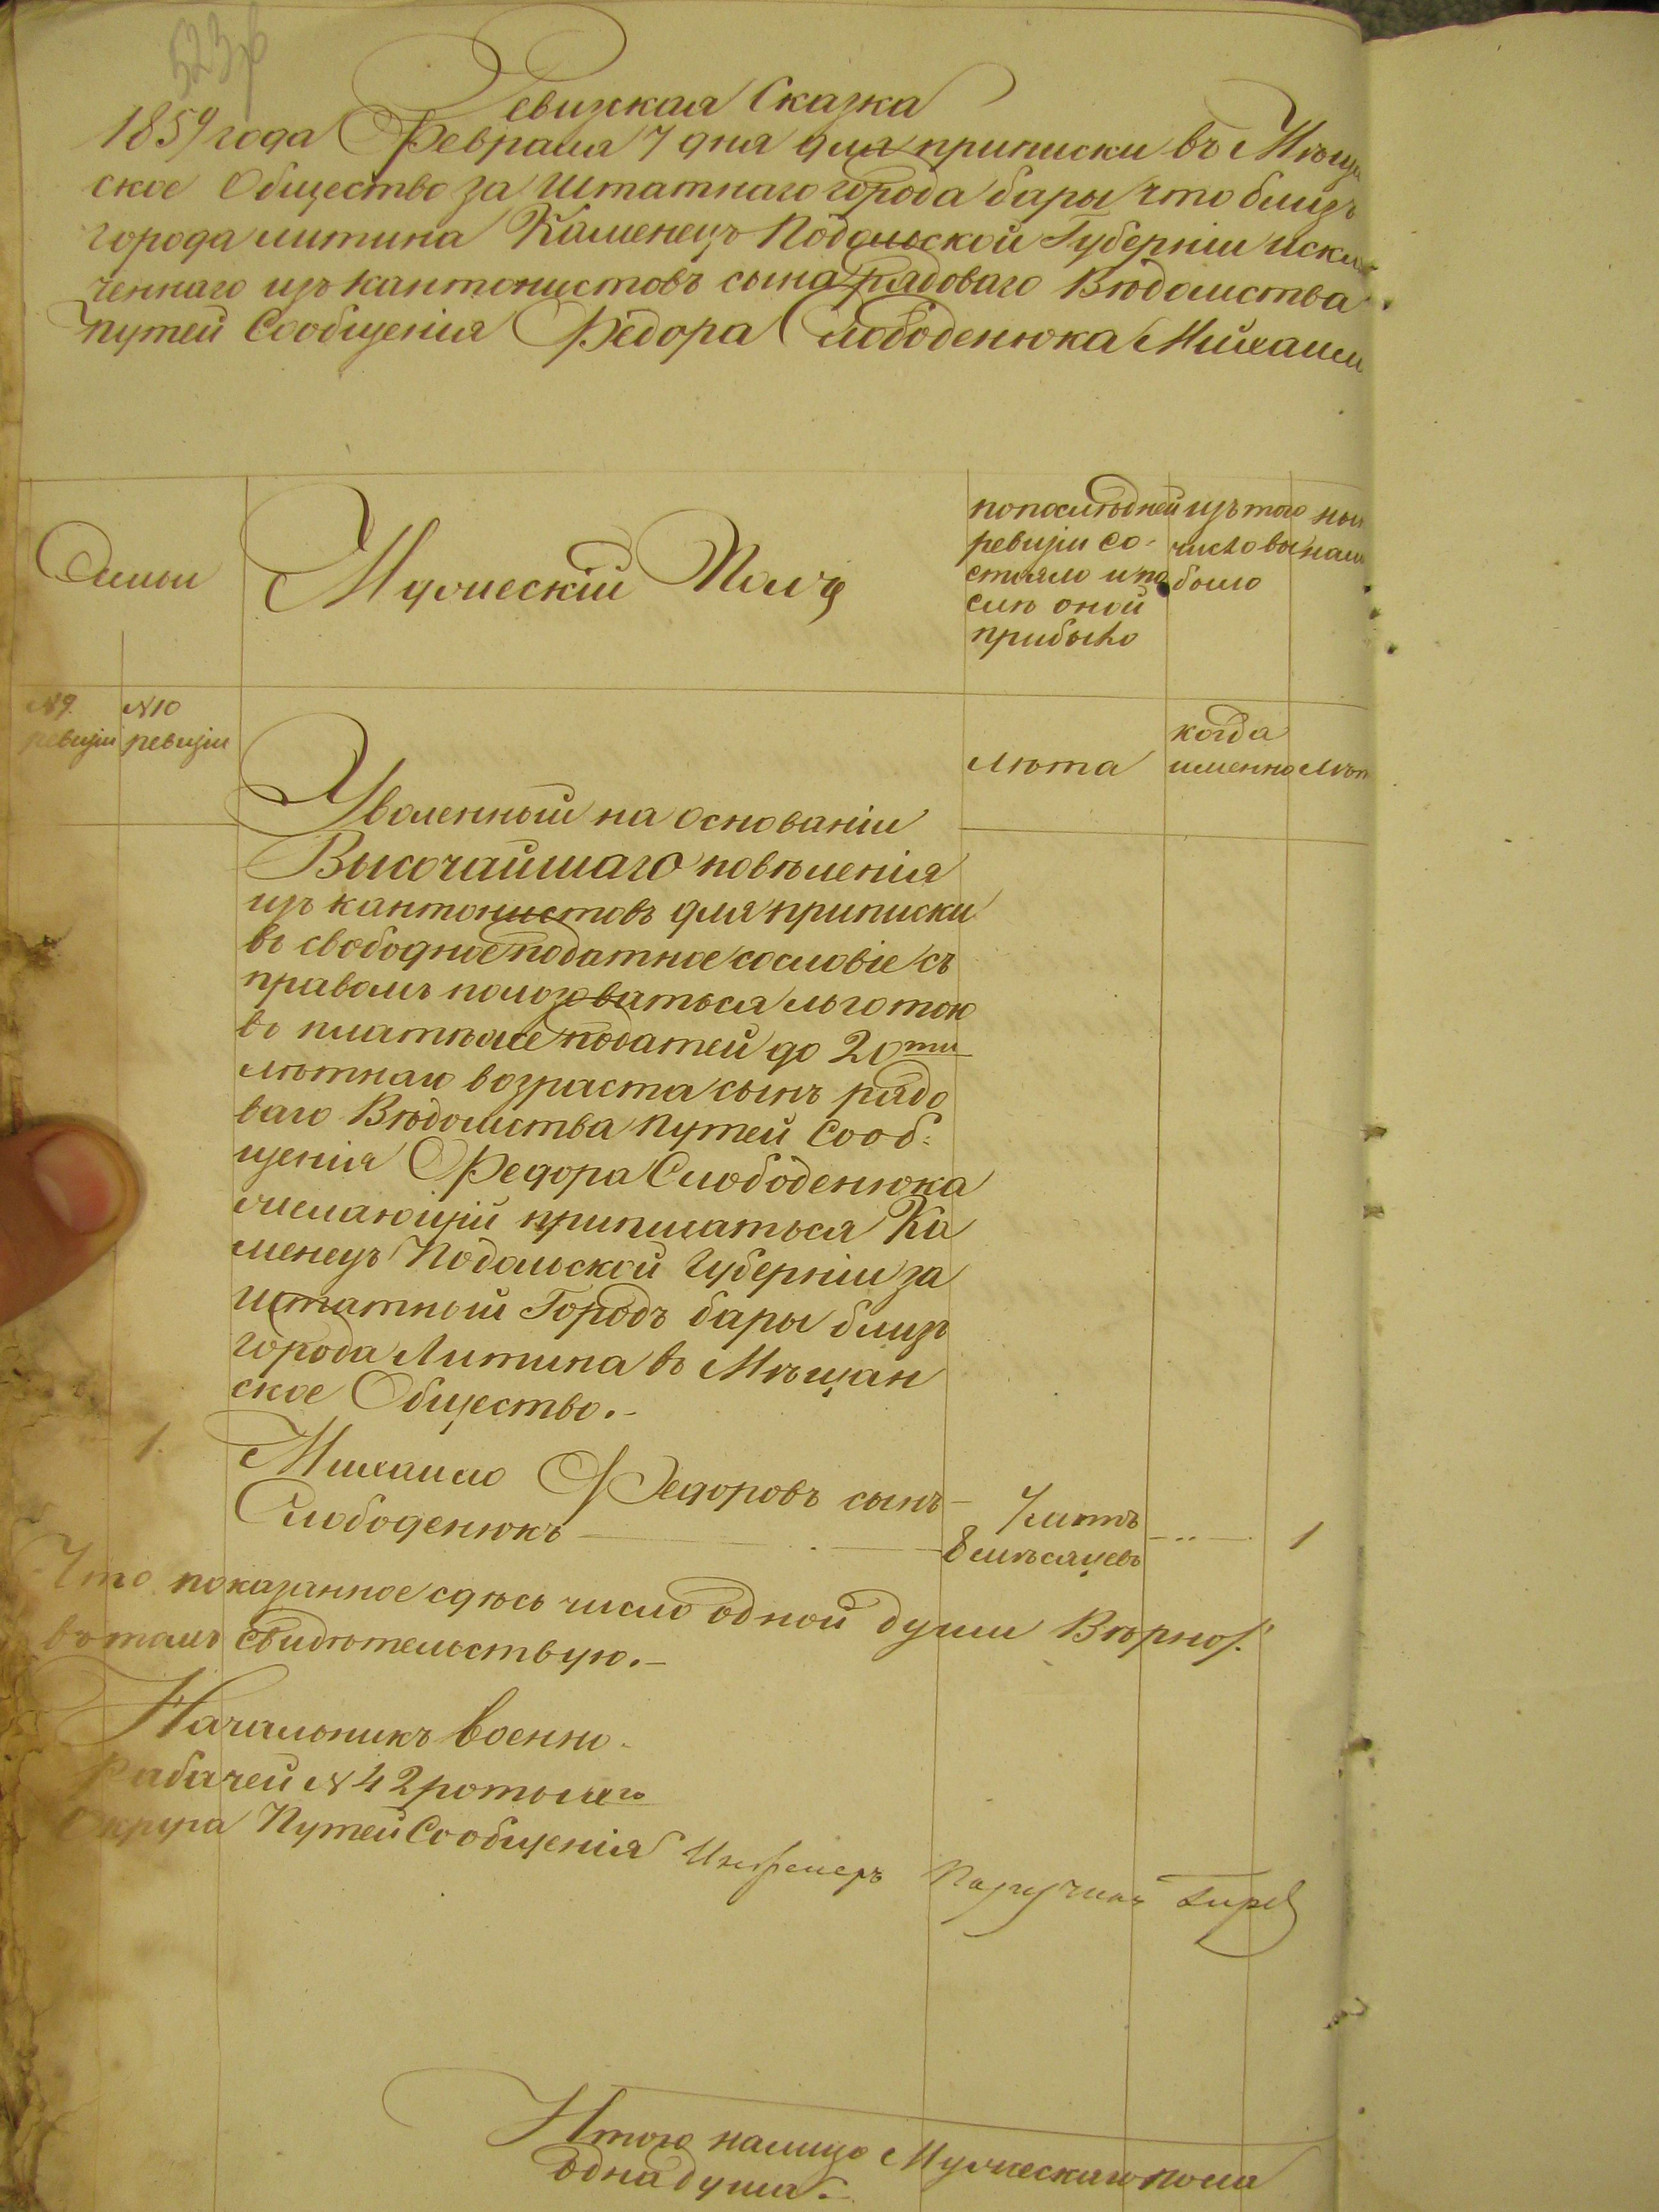 523
Ревизская Сказка
1859 года Февраля 7 дня для приписки въ Мѣща
ское Общество за Штатнаго города бары что близъ
города литина Каменецъ Подольской Губерніи исклю
ченнаго изъ кантонистовъ сына рядоваго Вѣдомства
путей Сообщенія Ѳедора Слободенюка Михаила
Семьи
Мужескій Полъ
по последней
ревизіи со-
стояло и по
слѣ оной
прибыло
изъ того
число вы
было
нын
нали
№ 9.
ревизіи
№ 10
ревизіи
лѣта
когда
именно
Лѣт
Уволенный на основаніи
Высочайшаго повѣленія
изъ кантонистовъ для приписки
въ свободное податное сословіе съ
правомъ ползоваться льготою
въ платѣже податей до 20ти
лѣтнаго возраста сынъ рядо
ваго Вѣдомства путей Сооб-
щенія Федора Слободенюка
желающій приписаться Ка
менецъ Подольской Губерніи за
штатный Городъ бары близъ
города Литина въ Мѣщан
ское Общество.-
1. Михаило Федоровъ сынъ
Слободенюкъ
7 лѣтъ
8 мѣсяцевъ
1
Что показанное сдѣсь число одной души Вѣрно!
въ томъ свидѣтельствую.-
Начальникъ военно-
Рабочей № 42 роты
Округа Путей Сообщенія Инженеръ Поручикъ
Итого налицо Мужескаго пола
одна душа.-